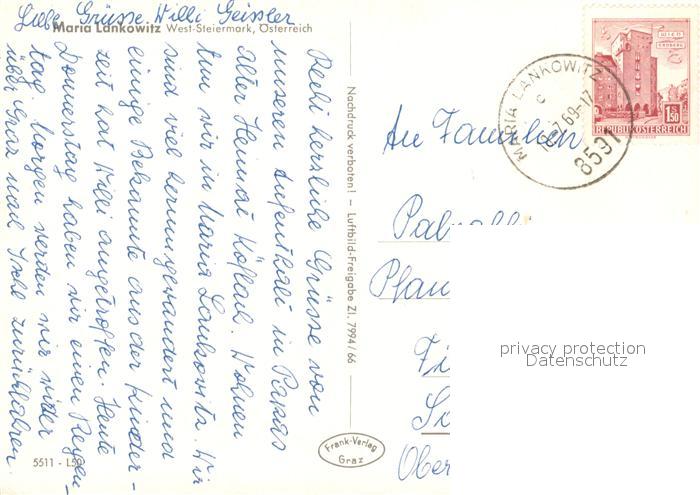 Liebe Grüsse Willi Geissler
Maria Lankowitz West-Steiermark, Österreich
Recht herzliche Grüsse von
unseren Aufenthalt in Papas
alter Heimat Köflach. Wohnen
tun wir in Maria Lankowitz. Wir
sind viel herumgewandert und
einige Bekannte aus der Kinder-
zeit hat Willi angetroffen. Heute
Donnerstag haben wir einen Regen-
tag. Morgen werden wir wieder
über Graz nach Ischl zurückfahren.
5511 - L50
Nachdruck verboten! – Luftbild-Freigabe Zl. 7994/66
Frank-Verlag
Graz
WIEN
ERDBERG
S
1.50
REPUBLIK ÖSTERREICH
MARIA LANKOWITZ
c
7.69-17
8591
An Familien
Pfan
Ober
privacy protection
Datenschutz